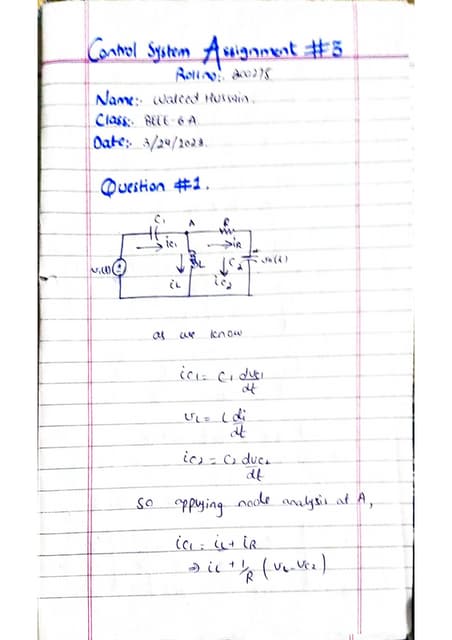 Control System Assignment #3
Roll no:. 200278
Name:. Waleed Hussain.
Class:. BEEE-6A
Date:. 3/24/2023.
Question #1.
C1 A R
ic1 iR
v1(t) L C2 vo(t)
iL ic2
as we know
ic1 = C1 dvc1/dt
vL = L di/dt
ic2 = C2 dvc2/dt
so applying node analysis at A,
ic1 = iL + iR
⇒ iL + 1/R (vL - vc2)